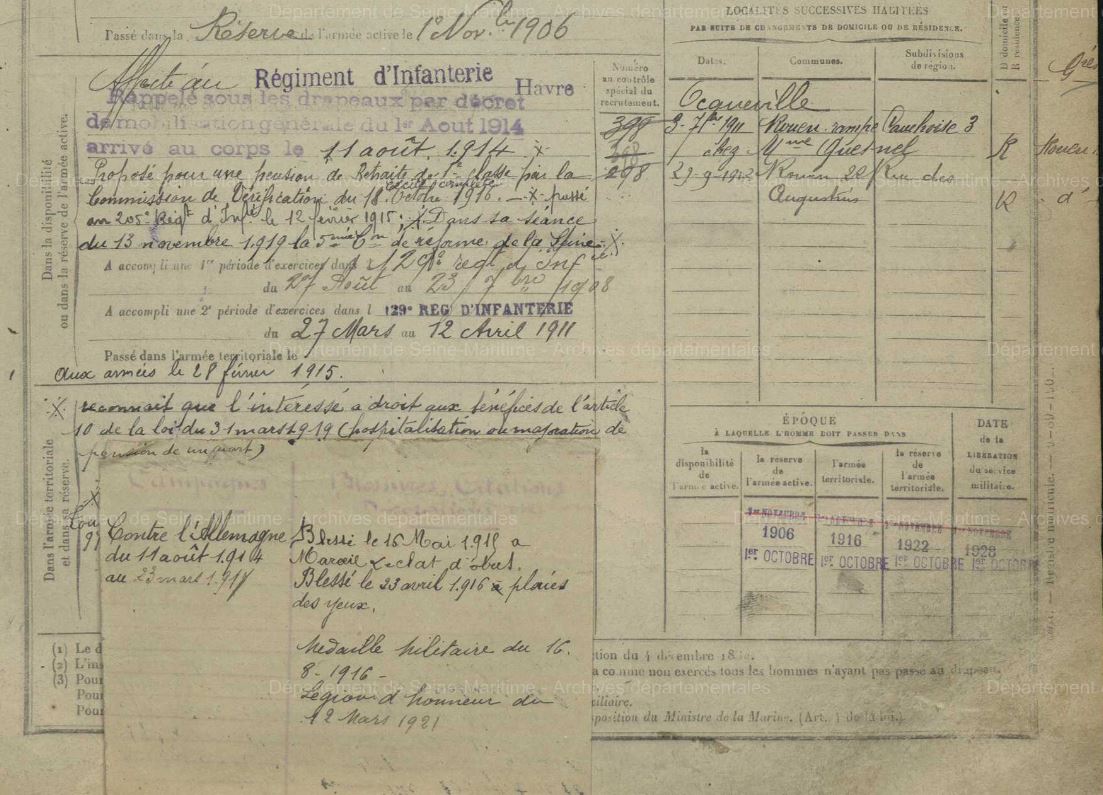 Passé dans la Réserve de l'armée active le 1er Nov.bre 1906
Affecté au Régiment d'Infanterie Havre
Rappelé sous les drapeaux par décret
de mobilisation générale du 1er Aout 1914
arrivé au corps le 11 août 1914 -x-
Proposé pour une pension de Retraite de 1re classe par la
cécité complète
Commission de Vérification du 18 Octobre 1916. -x- passé
au 205e Régt d'Infie le 12 février 1915; x Dans sa séance
du 13 novembre 1919 la 5ème Con de réforme de la Seine
A accompli une 1re période d'exercices dans le 129e regt d'Infie
du 27 Août au 23 7bre 1908
A accompli une 2e période d'exercices dans l 129e REG D'INFANTERIE
du 27 Mars au 12 Avril 1911
Passé dans l'armée territoriale le
aux armées le 28 février 1915.
reconnait que l'intéressé a droit aux bénéfices de l'article
10 de la loi du 31 mars 1919 (hospitalisation ou majoration de
pension de un quart)
Dans la disponibilité
ou dans la réserve de l'armée active.
Dans l'armée territoriale
et dans sa réserve.
Numéro
au contrôle
spécial du
recrutement.
398
298
LOCALITÉS SUCCESSIVES HABITÉES
PAR SUITE DE CHANGEMENTS DE DOMICILE OU DE RÉSIDENCE.
Dates. Communes. Subdivisions
de région.
D domicile ou
R résidence
Ocqueville
3-7bre 1911 Rouen rampe Cauchoise 3
chez Mme Quesnel R Rouen
Rouen 20 Rue des
Augustins
Campagnes Blessures, Citations
Décorations
Contre l'Allemagne
du 11 août 1914
au 23 mars 1917
Blessé le 16 Mai 1915 a
Maroeil éclat d'obus.
Blessé le 23 avril 1916 plaies
des yeux.
Médaille militaire du 16.
8-1916-
Légion d'honneur du
12 Mars 1921
ÉPOQUE
À LAQUELLE L'HOMME DOIT PASSER DANS
la
disponibilité
de
l'armée active.
la réserve
de
l'armée active.
l'armée
territoriale.
la réserve
de
l'armée
territoriale.
DATE
de la
LIBÉRATION
du service
militaire.
1er NOVEMBRE
1906 1916 1922 1928
1er OCTOBRE 1er OCTOBRE 1er OCTOBRE 1er OCTOBRE
(1) Le d
(2) L'ins
(3) Pour
Pour
Pour
tion du 4 décembre
a comme non exercés tous les hommes n'ayant pas passé au drapeau.
xiliaire.
sposition du Ministre de la Marine. (Art. de la loi.)
Département de Seine-Maritime - Archives départementales